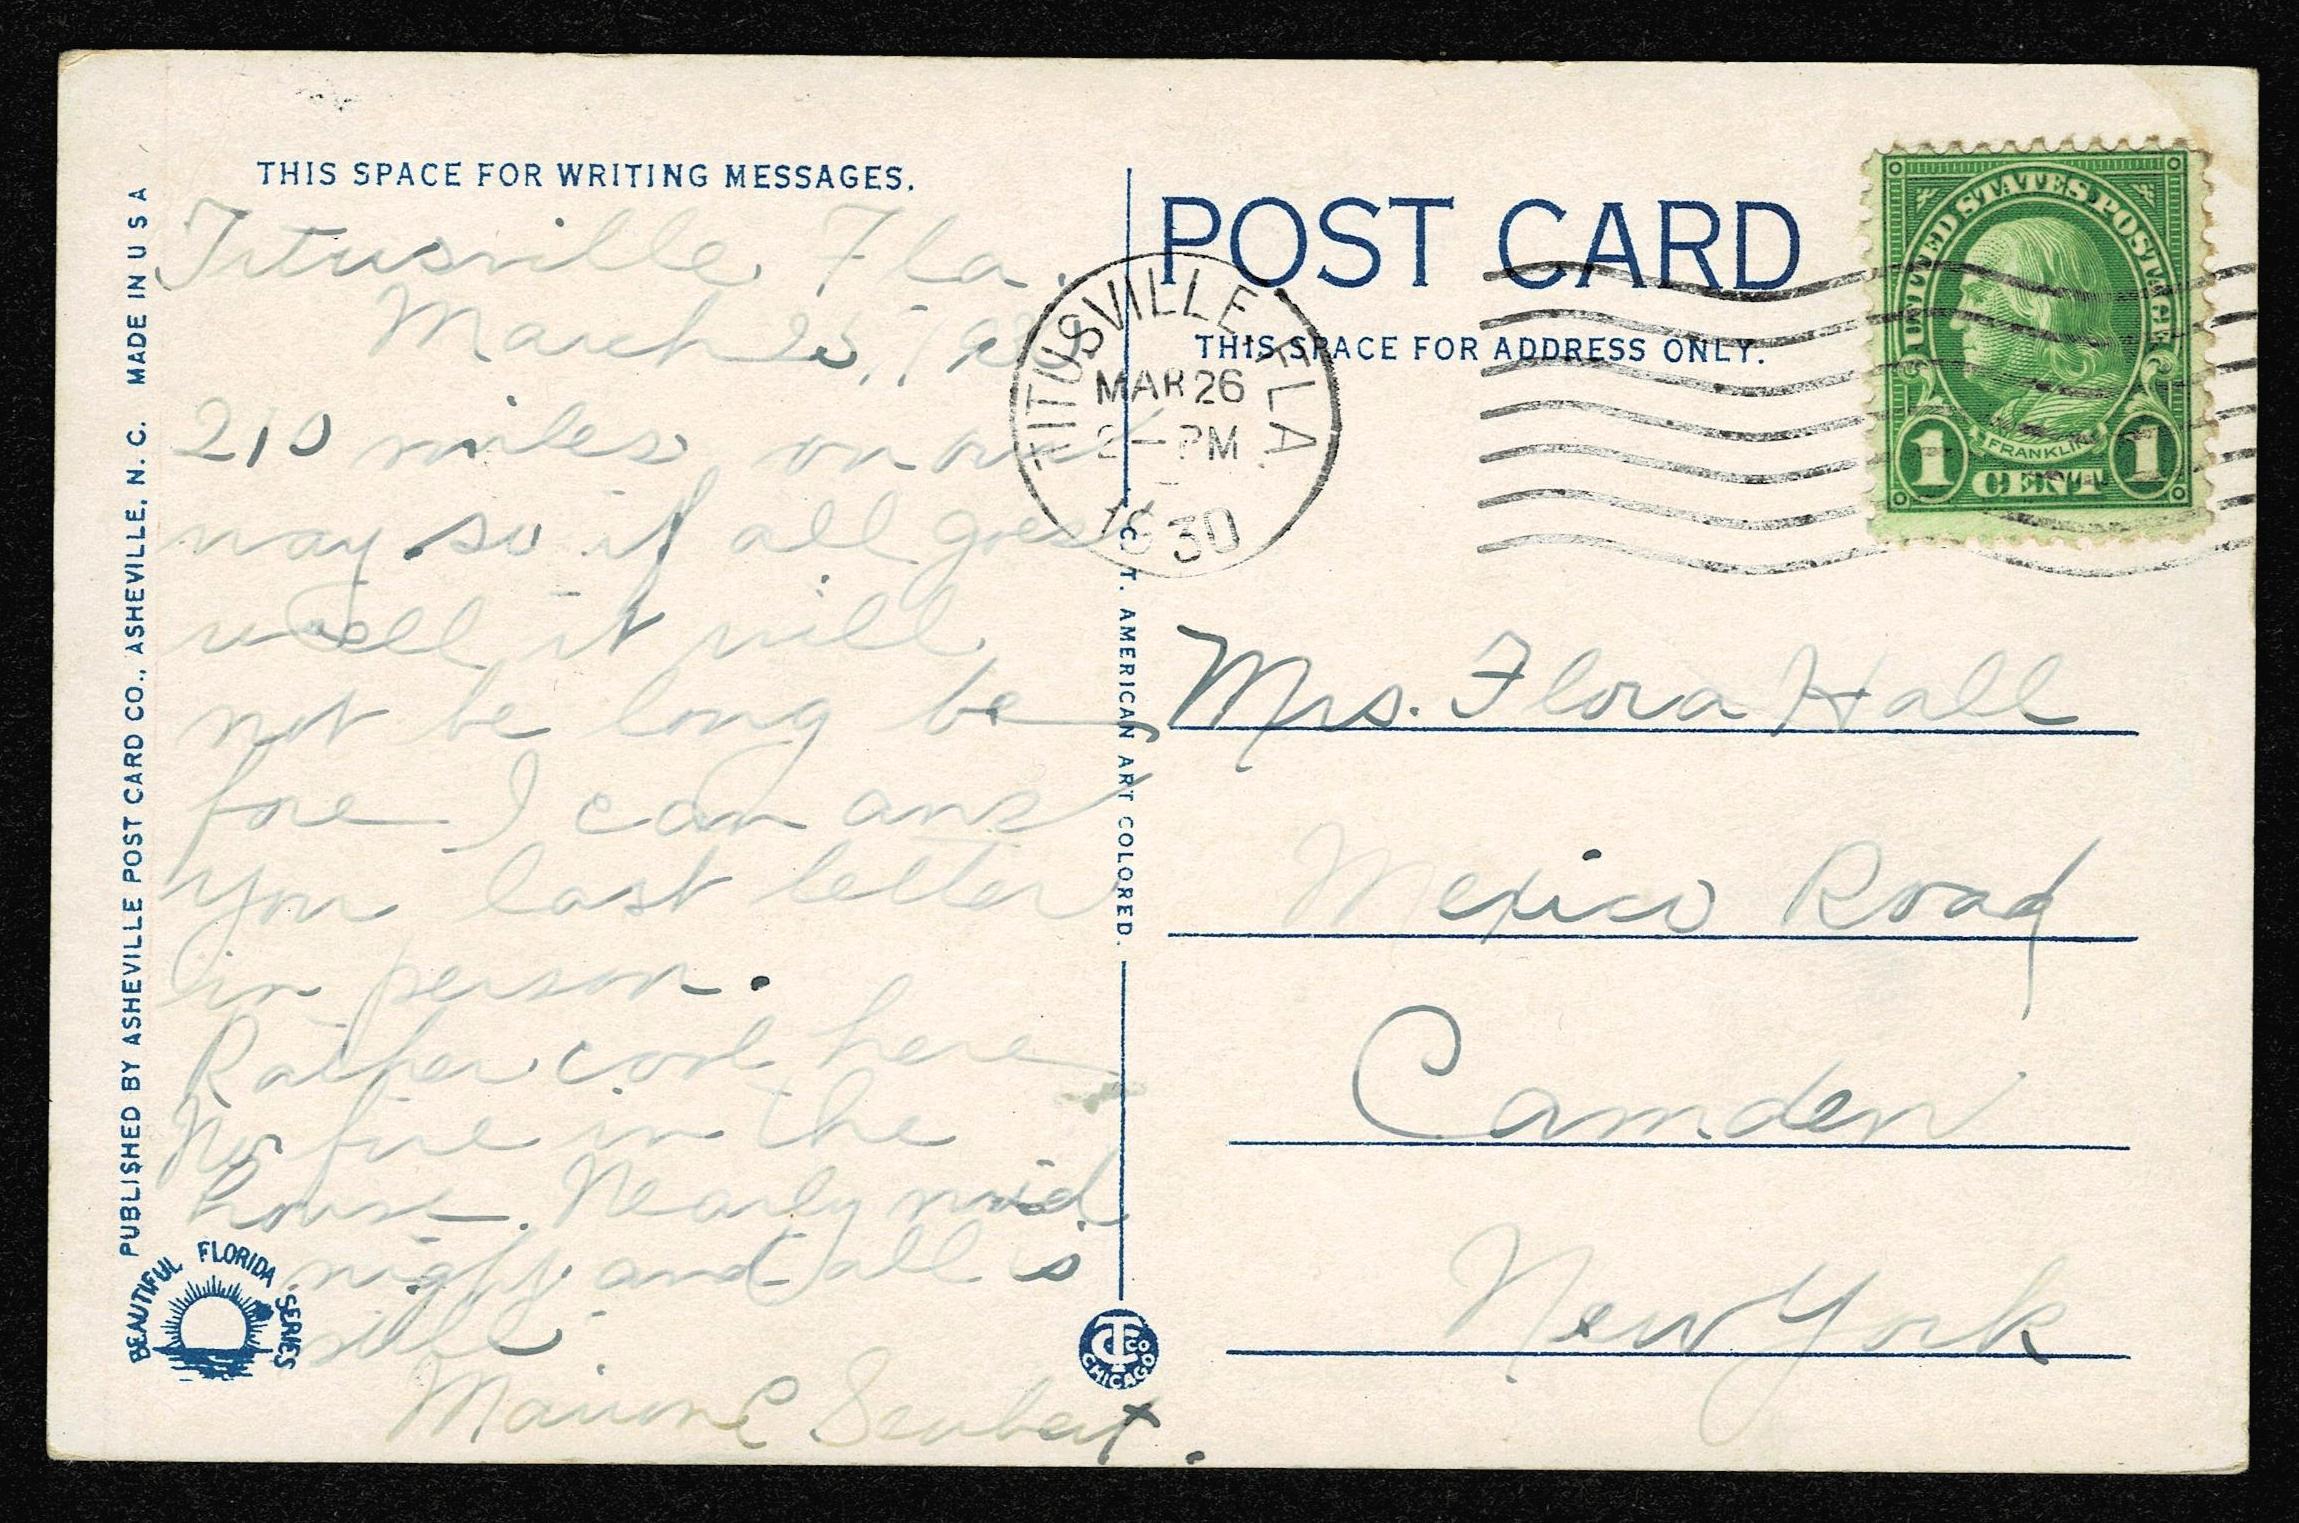 THIS SPACE FOR WRITING MESSAGES.
Titusville, Fla.
March 25, 1930
210 miles, on our
way so if all goes
well it will
not be long be
fore I can ans
your last letter
in person.
Rather cool here
No fire in the
house. Nearly mid
night and all is
still.
Marion E
PUBLISHED BY ASHEVILLE POST CARD CO., ASHEVILLE, N. C. MADE IN U S A
BEAUTIFUL FLORIDA SERIES
C. T. AMERICAN ART COLORED.
CT CO CHICAGO
POST CARD
THIS SPACE FOR ADDRESS ONLY.
TITUSVILLE FLA.
MAR 26
2 - PM
1930
UNITED STATES POSTAGE
FRANKLIN
1 CENT 1
Mrs. Flora Hall
Mexico Road
Camden
New York